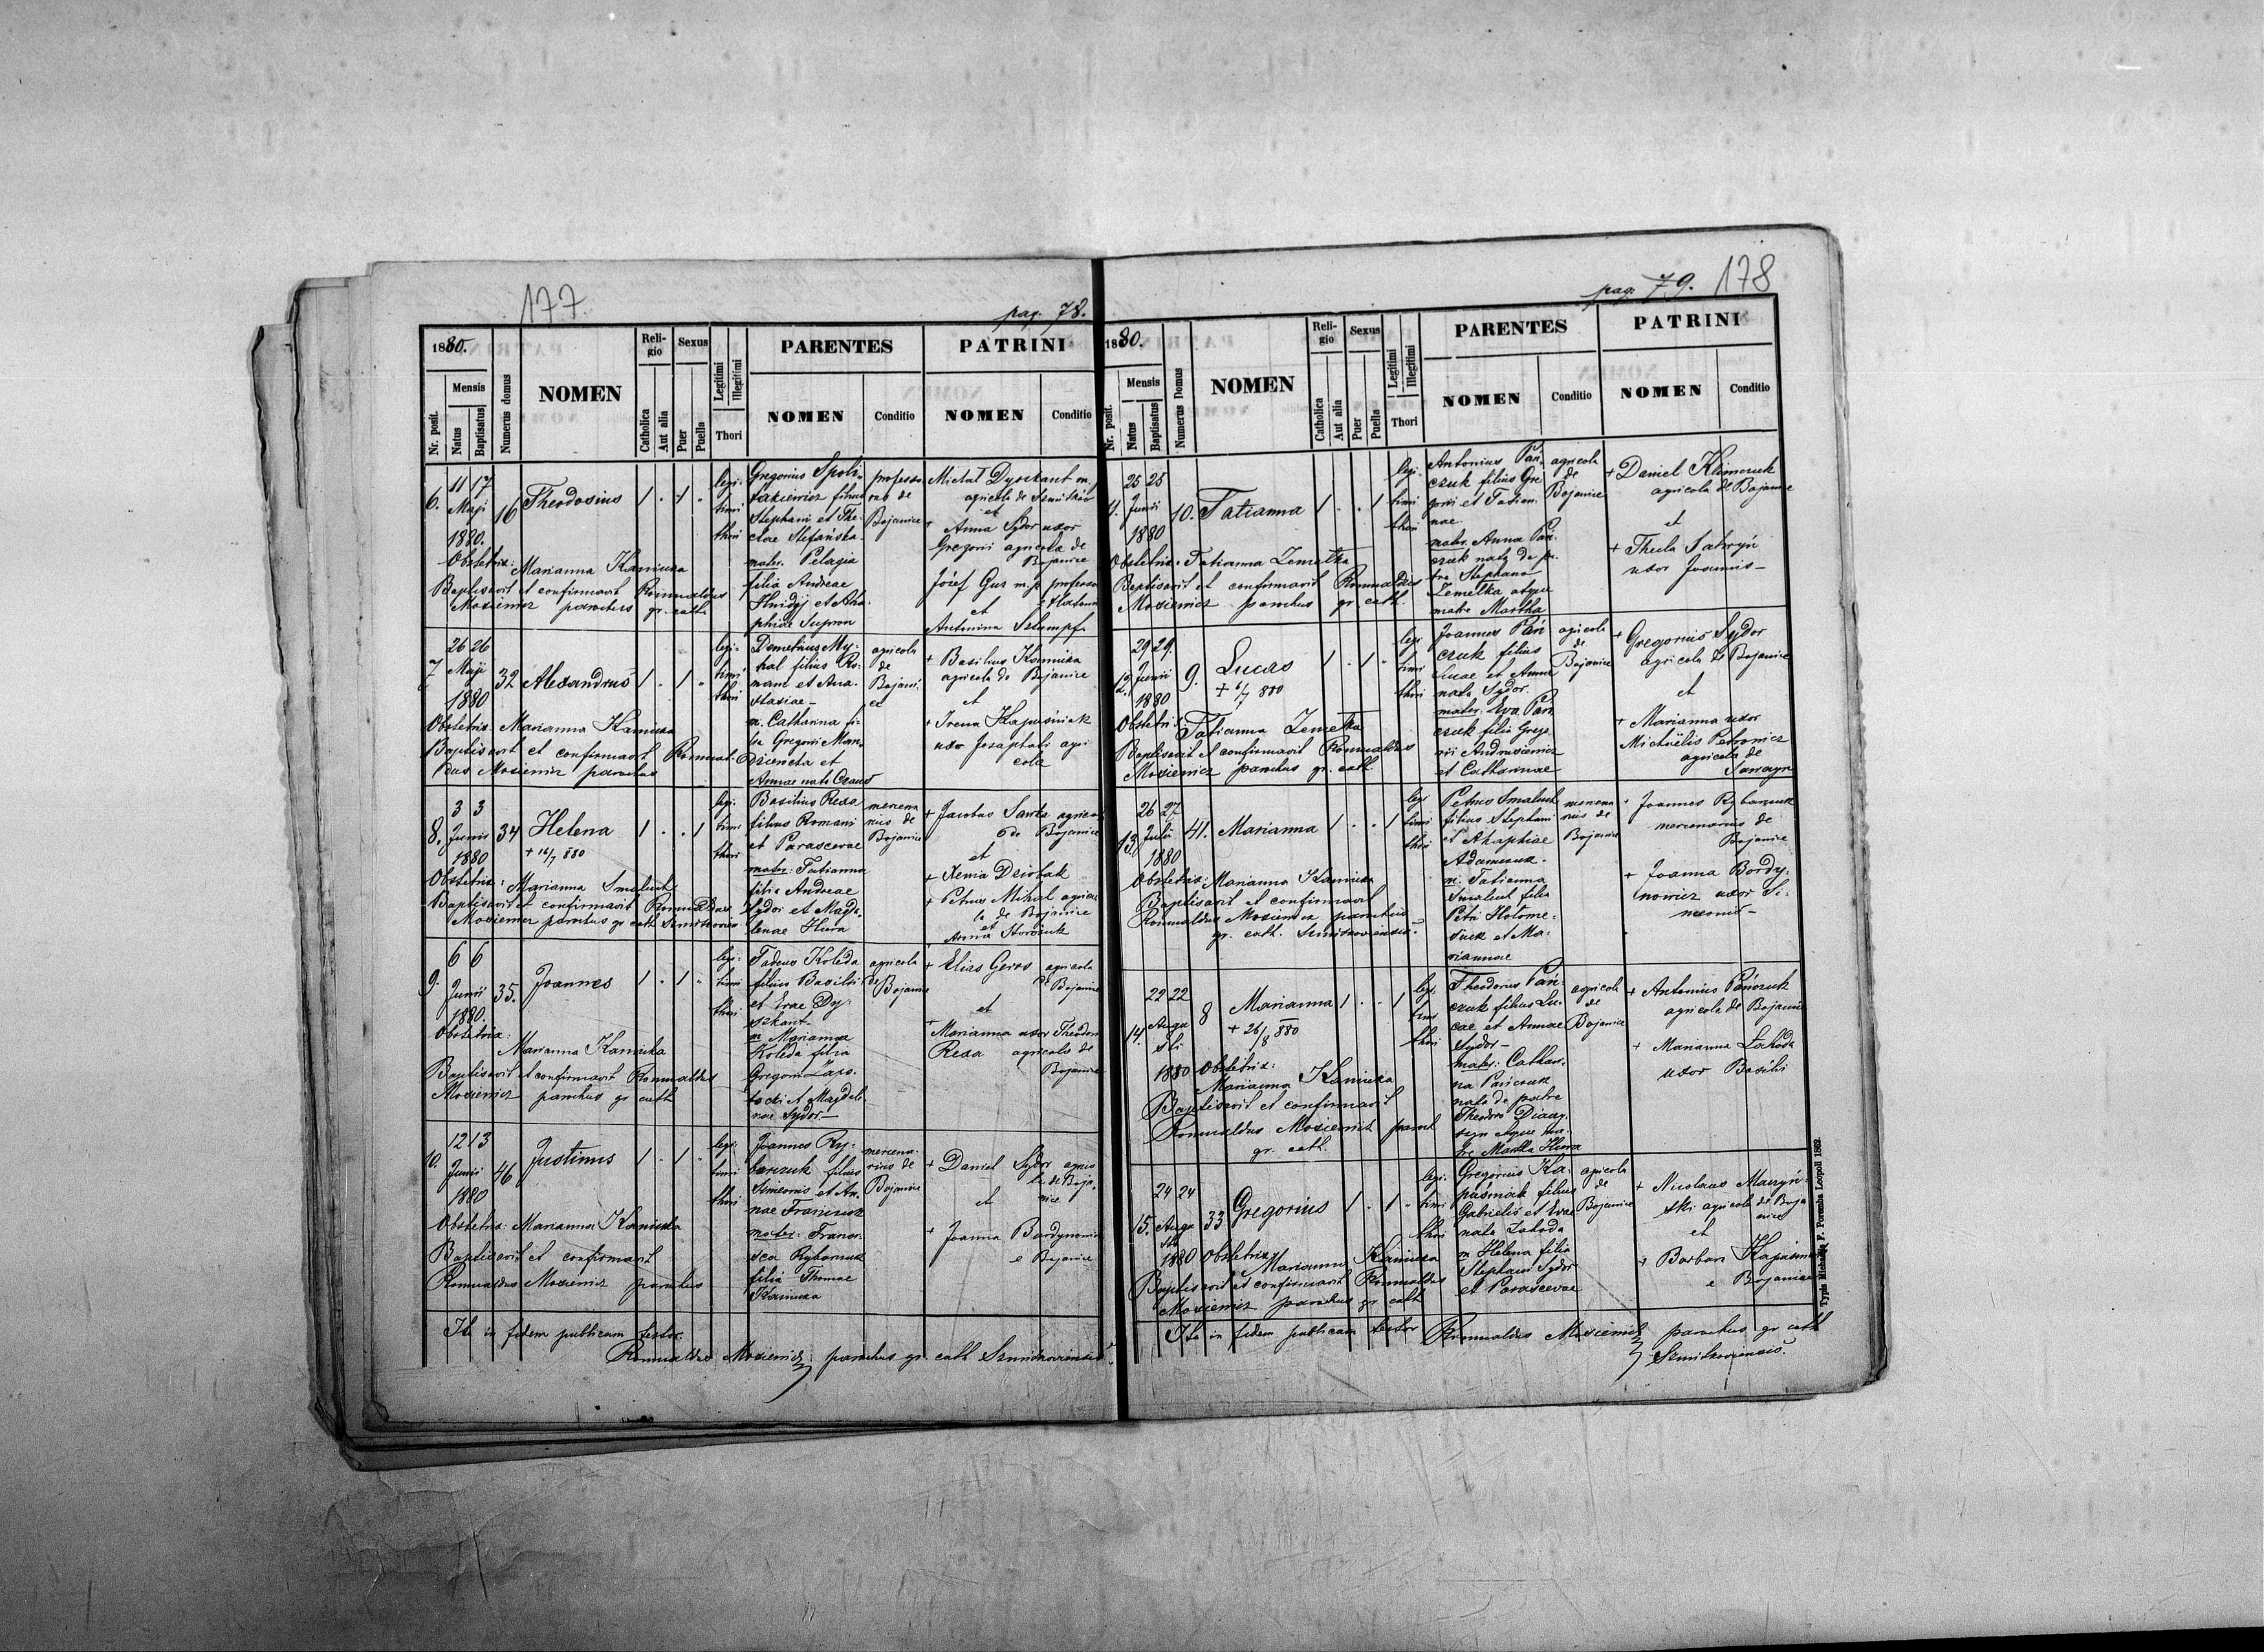 177
pag. 78.
1880.
Nr. posit.
Mensis
Natus
Baptisatus
Numerus domus
NOMEN
Religio
Catholica
Aut alia
Sexus
Puer
Puella
Legitimi
Illegitimi
Thori
PARENTES
NOMEN
Conditio
PATRINI
NOMEN
Conditio
6.
11 17
Maji
1880.
16
Theodosius
1 . 1 "
legi-
timi
thori
Gregorius
filius
Stephani et The-
clae Stefańska
mater. Pelagia
filia Andreae
Hnidyj et Aha-
phiae Supron
professo
rus de
Bojanice
Michał Dyszkant m.
agricola de Szmitków
et
+ Anna Sydor uxor
Gregorii agricola de
Bojanice
Józef Gus m.p. professor
et
Antonina Sztumpf
Obstetrix: Marianna Kaniuka
Baptisavit et confirmavit Romualdus
Mosiewicz parochus gr. cath
7
26 26
Maji
1880
32
Alexandrus
1 . 1 "
legi-
timi
thori
Demetrius My-
hal filius Ro-
mani et Ana-
stasiae -
m. Catharina fi-
lia Gregorii Man-
dziencla et
Annae nata
agricola
de
Bojani-
ce
+ Basilius Kaniuka
agricola de Bojanice
et
+ Irena Kapuśniak
uxor Josaphati agri
cola
Obstetrix: Marianna Kaniuka
Baptisavit et confirmavit Romual-
dus Mosiewicz parochus
8.
3 3
Junii
1880
34
Helena
+ 16/7 880
1 . . 1
legi-
timi
thori
Basilius Rexa
filius Romani
et Parascevae
mater: Tatianna
filia Andreae
Sydor et Magda-
lenae Hura
mercena
rius de
Bojanice
+ Jacobus Sawka agrico
de Bojanice
et
+ Xenia Dziobak
+ Petrus Mihal agrico
la de Bojanice
et
Anna Storożuk
Obstetrix: Marianna Smaluch
Baptisavit et confirmavit Romualdus
Mosiewicz parochus gr cath Szmitkoviensis
9.
6 6
Junii
1880.
35.
Joannes
1 . 1 "
legi-
timi
thori
Tadeus Koleda
filius Basilii
et Evae Dy-
szkant
m Marianna
Koleda filia
Gregorii Łapo-
tocki et Magdale
nae Sydor -
agricola
de
Bojanice
+ Elias Geres agricola
de Bojanice
et
+ Marianna uxor Theodori
Rexa agricola de
Bojanice
Obstetrix:
Marianna Kaniuka
Baptisavit et confirmavit Romualdus
Mosiewicz parochus gr cath
10.
12 13
Junii
1880
46
Justinus
1 . 1 "
legi-
timi
thori
Joannes Ry-
barczuk filius
Simeonis et An-
nae Franczuk
mater: Franci-
sca Rybarczuk
filia Thomae
Kaniuka
mercena-
rius de
Bojanice
+ Daniel Sydor agrico
la de Boja-
nice
et
+ Joanna Bordynowicz
e Bojanice
Obstetrix: Marianna Kaniuka
Baptisavit et confirmavit
Romualdus Mosiewicz parochus
Ita in fidem publicam testor.
Romualdus Mosiewicz parochus gr. cath Szmitkoviensis.
pag: 79. 178
1880.
Nr. posit.
Mensis
Natus
Baptisatus
Numerus Domus
NOMEN
Religio
Catholica
Aut alia
Sexus
Puer
Puella
Legitimi
Illegitimi
Thori
PARENTES
NOMEN
Conditio
PATRINI
NOMEN
Conditio
25 25
Junii
1880
10.
Tatianna
1 . . 1
legi-
timi
thori
Antonius Pań-
czuk filius Gre
gorii et Tatian-
nae.
mater. Anna Pań-
czuk nata de pa-
tre Stephano
Zemełka atque
matre Martha
agricola
de
Bojanice
+ Daniel Klimczuk
agricola de Bojanice
et
+ Thecla Sahryń
uxor Joannis -
Obstetrix: Tatianna Zemełka
Baptisavit et confirmavit Romualdus
Mosiewicz parochus gr. cath.
12.
29 29.
Junii
1880
9.
Lucas
+ 6/7 880
1 . 1 "
legi
timi
thori
Joannes Pań
czuk filius
Lucae et Annae
nata Sydor.
mater: Eva Pań
czuk filia Grego
rii Andrusiewicz
et Catharinae
agricola
de
Bojanice
+ Gregorius Sydor
agricola de Bojanice
et
+ Marianna uxor
Michaëlis Petrowicz
agricola de
Obstetrix: Tatianna Zemełka
Baptisavit et confirmavit Romualdus
Mosiewicz parochus gr. cath.
13.
26 27
Julii
1880
41.
Marianna
1 . . 1
legi
timi
thori
Petrus Smaluch
filius Stephani
et Ahaphiae
Adamczuk.
m. Tatianna
Smaluch filia
Petri Hołome-
et Ma-
riannae
mercena
rius de
Bojanice
+ Joannes Rybarczuk
mercenarius de
Bojanice
+ Joanna Bordy-
nowicz uxor Si-
meonis -
Obstetrix: Marianna Kaniuka
Baptisavit et confirmavit
Romualdus Mosiewicz parochus
gr. cath. Szmitkoviensis.
14.
22 22
Augu
sti
1880
8
Marianna
+ 26/8 880
1 . . 1
legi
timi
thori
Theodorus Pań-
czuk filius Lu-
cae et Annae
Sydor -
mater. Cathari-
na Pańczuk
nata de patre
Theodoro
atque ma-
tre Martha Hura
agricola
de
Bojanice
+ Antonius Pańczuk
agricola de Bojanice
+ Marianna Łahoda
uxor Basilii
Obstetrix:
Marianna Kaniuka
Baptisavit et confirmavit
Romualdus Mosiewicz paroch
gr. cath.
15.
24 24
Augu
sti
1880
33
Gregorius
1 . 1 "
legi-
timi
thori
Gregorius Ka-
puśniak filius
Gabrielis et Evae
nata Łahoda
m Helena filia
Stephani Sydor
et Parascevae
agricola
de
Bojanice
+ Nicolaus Mazyń-
ski agricola de Boja
nice
et
+ Barbara Kapuśniak
e Bojanice
Obstetrix Marianna Kaniuka
Baptisavit et confirmavit Romualdus
Mosiewicz parochus gr cath
Ita in fidem publicam testor Romualdus Mosiewicz parochus gr cath
Szmitkoviensis.
Typis Michaelis F. Poremba Leopoli 1862.